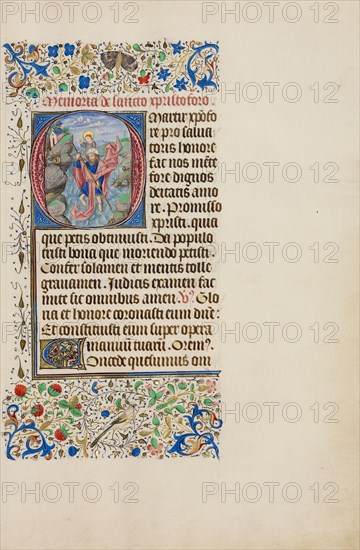 Memoria de sancto xpristoforo.
O Martir xpofo
re pro salua
toris honore
fac nos mẽte
fore dignos
deitatis amo
re. Promisso
xpristi. quia
que petis obtinuisti. Da populo
tristi bona que moriendo petisti.
Confer solamen et mentis tolle
grauamen. Judicis examen fac
mite sic omnibus amen. ℣. Glo
ria et honore coronasti eum dñe:
Et constituisti eum super opera
manuũ tuarũ. Oremꝰ.
Concede quesumus om
PHOTO 12 PHOTO 12 PHOTO 12
PHOTO 12 PHOTO 12 PHOTO 12
PHOTO 12 PHOTO 12 PHOTO 12
PHOTO 12 PHOTO 12 PHOTO 12
PHOTO 12 PHOTO 12 PHOTO 12
PHOTO 12 PHOTO 12 PHOTO 12